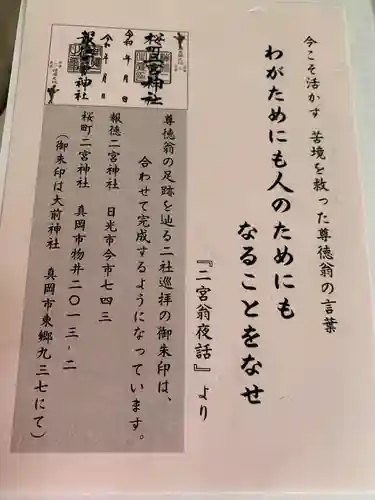 今こそ活かす 苦境を救った尊徳翁の言葉
わがためにも人のためにも
なることをなせ
『二宮翁夜話』より
尊徳翁の足跡を辿る二社巡拝の御朱印は、
合わせて完成するようになっています。
報徳二宮神社 日光市今市七四三
桜町二宮神社 真岡市物井二〇一三-二
(御朱印は大前神社 真岡市東郷九三七にて)
桜町二宮神社
令和 年 月 日
報徳二宮神社
令和 年 月 日